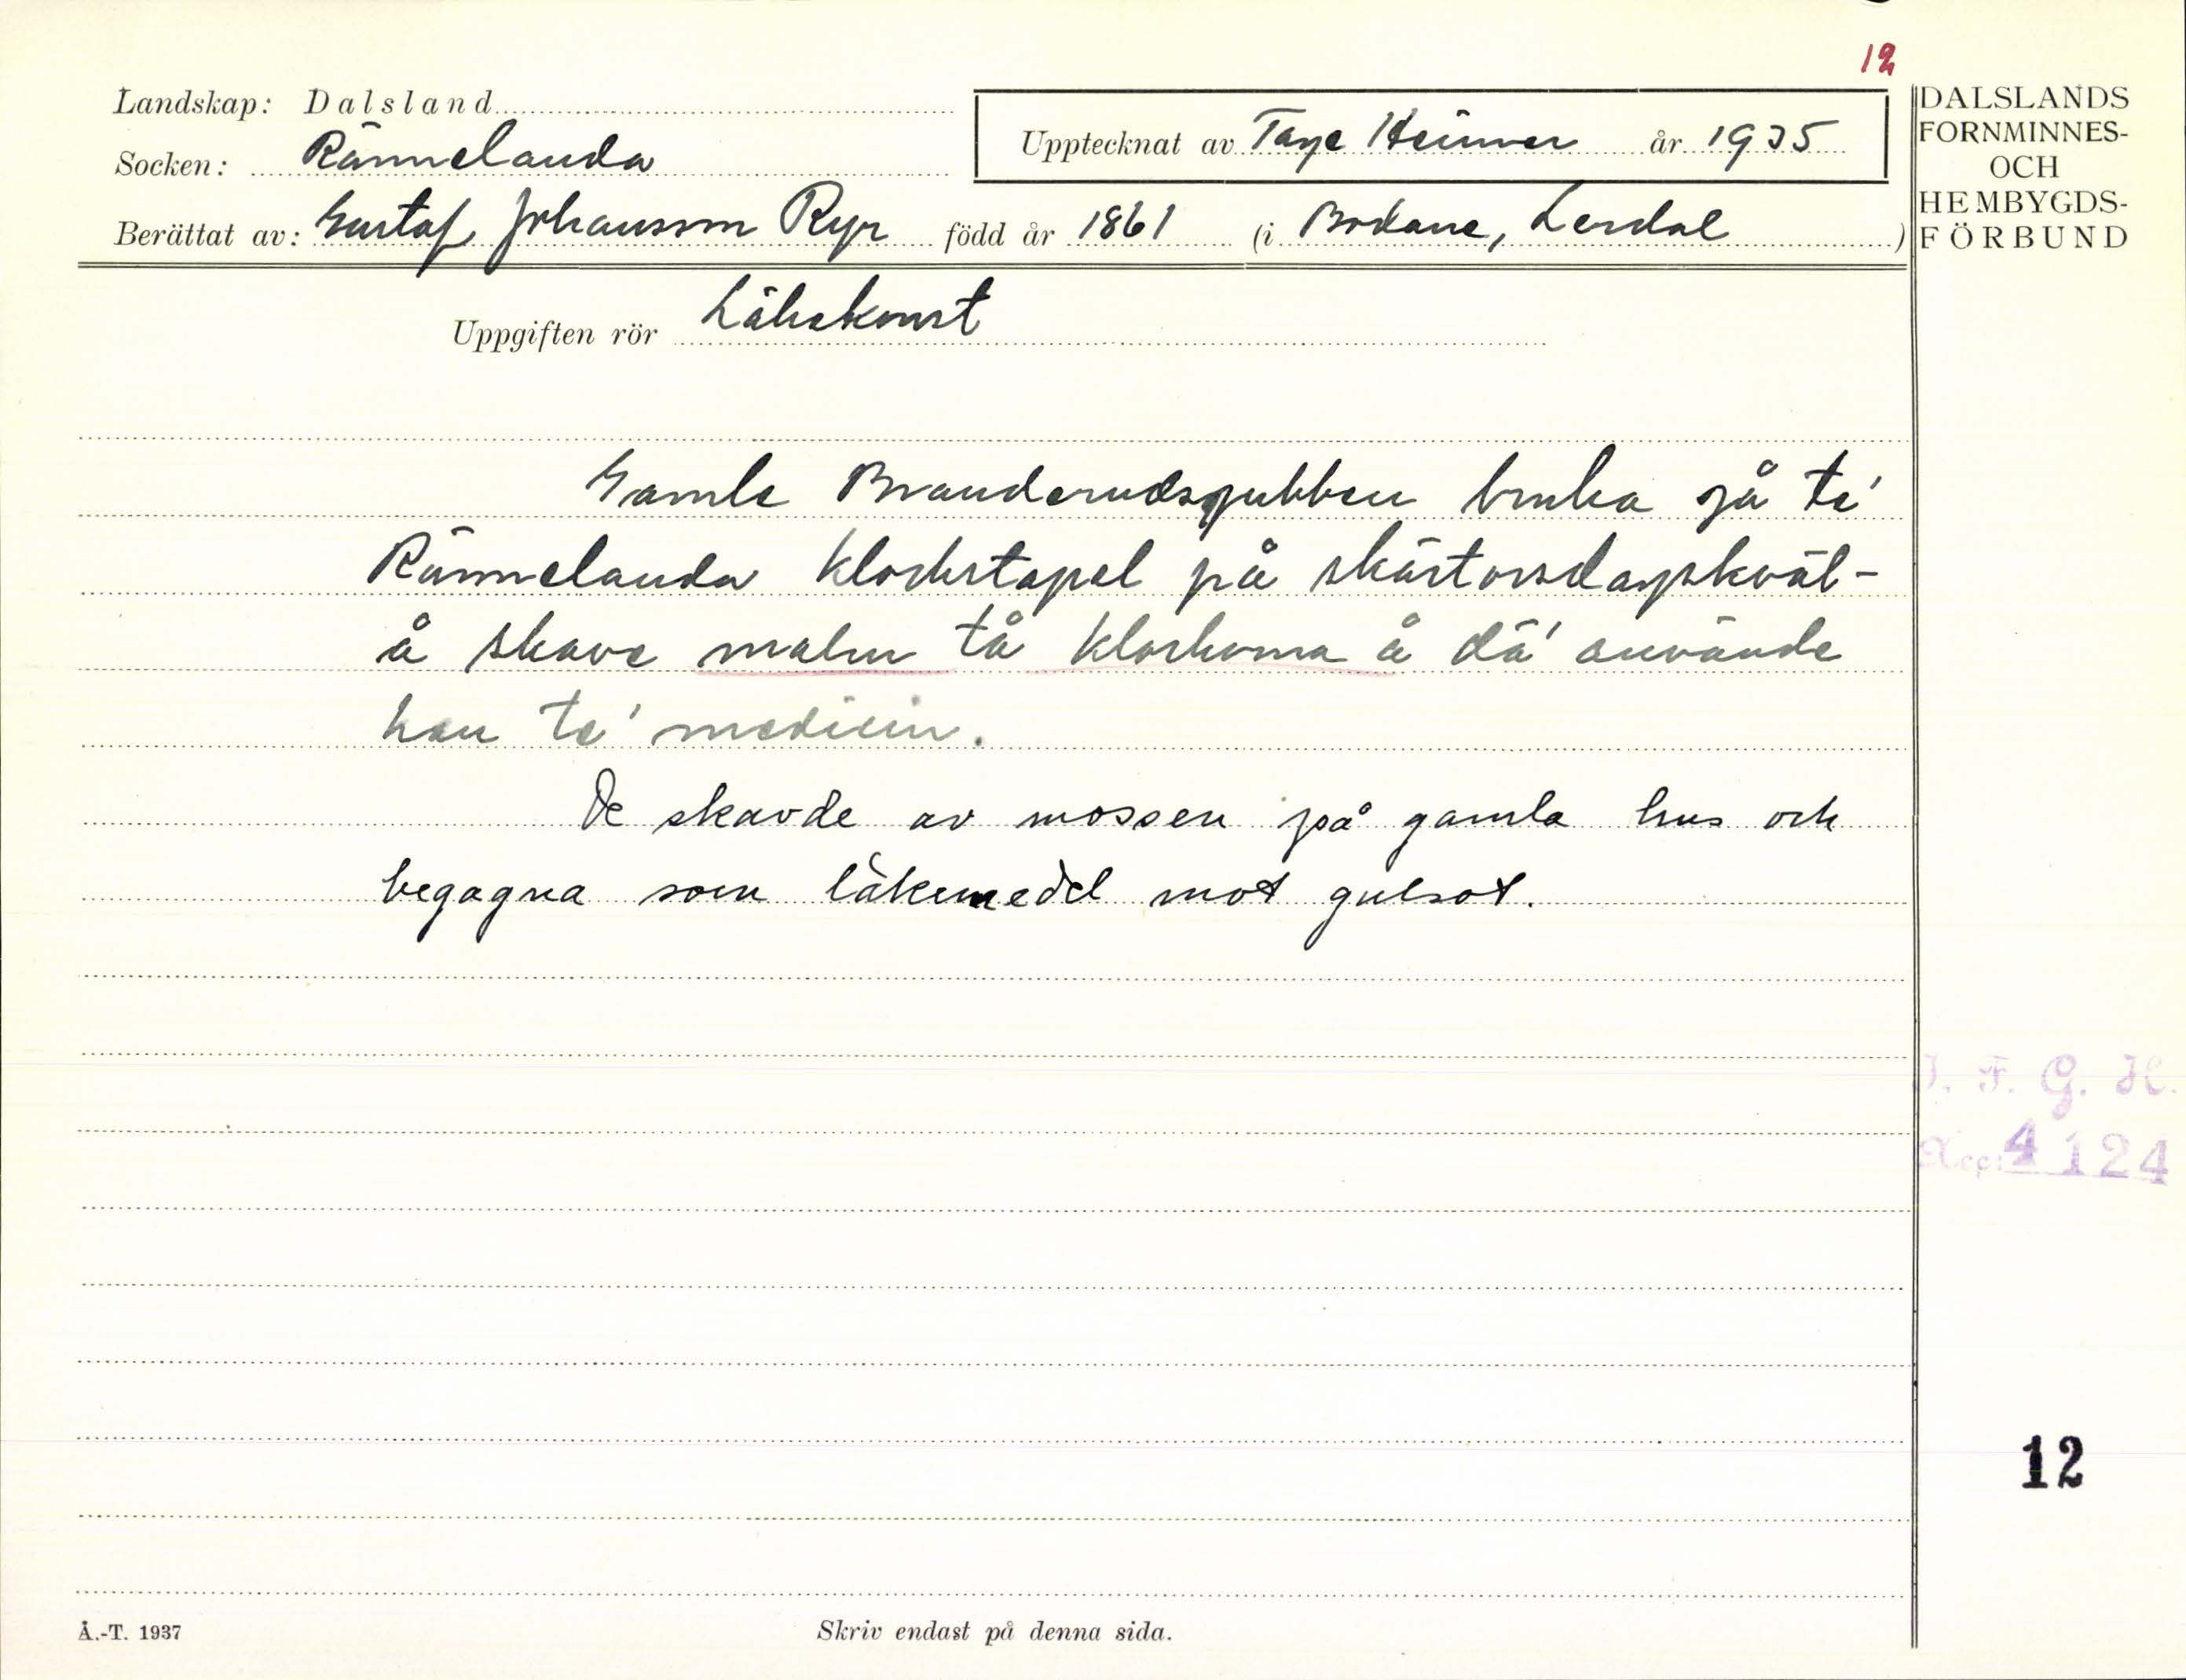 12
Landskap: Dalsland
Socken: Rännelanda
Upptecknat av Tage Heimer år 1935
Berättat av: Gustaf Johansson Ryr född år 1861 (i Bodane, Lerdal)
DALSLANDS
FORNMINNES-
OCH
HEMBYGDS-
FÖRBUND
Uppgiften rör Läkekonst
Gamle Branderudsgubben bruka gå te'
Rännelanda klockstapel på skärtorsdagskväl-
å skave malm tå klockorna å dä' använde
han te' medicin.
De skavde av mossen på gamla hus och
begagna som läkemedel mot gulsot.
I. F. G. H.
Acc: 4124
12
Å.-T. 1937
Skriv endast på denna sida.